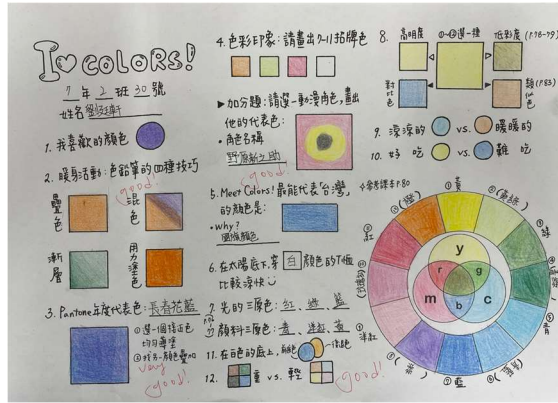 I ♡ COLORS!
7 年 2 班 30 號
姓名
1. 我喜歡的顏色
2. 暖身活動:色鉛筆の四種技巧
good!
疊色
混色
漸層
用力塗色
3. Pantone年度代表色:長春花藍
very good!
4. 色彩印象:請畫出7-11招牌色
▶加分題:請選一動漫角色,畫出
他的代表色:
・角色名稱
野原新之助
good!
5. Meet Colors! 最能代表台灣
的顏色是:
・why?
國旗顏色
6. 在太陽底下,穿 白 顏色的T恤
比較涼快
7. 光的三原色:紅、綠、藍
顏料三原色:
11. 在白色的底上,
12. 重 vs. 輕
good!
8. 高明度
低彩度 (P.78-79)
對比色
類似色
(P.83)
9. 涼涼的 vs. 暖暖的
10. 好 吃 vs. 難 吃
P.80
黃
綠
青
藍
洋紅
紅
y
r
g
m
c
b